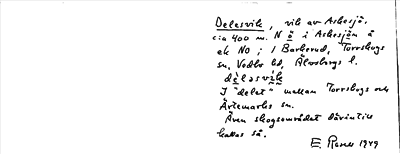 Delesvik, vik av Askesjö,
cia 400 m. N ö i Askesjön å
ek NO; 1 Barkerud, Torrskogs
sn, Vedbo hd, Älvsborgs l.
dèlesvík
I "delet" mellan Torrskogs och
Ärtemarks sn.
Även skogsområdet därintill
kallas så.
E. 1949